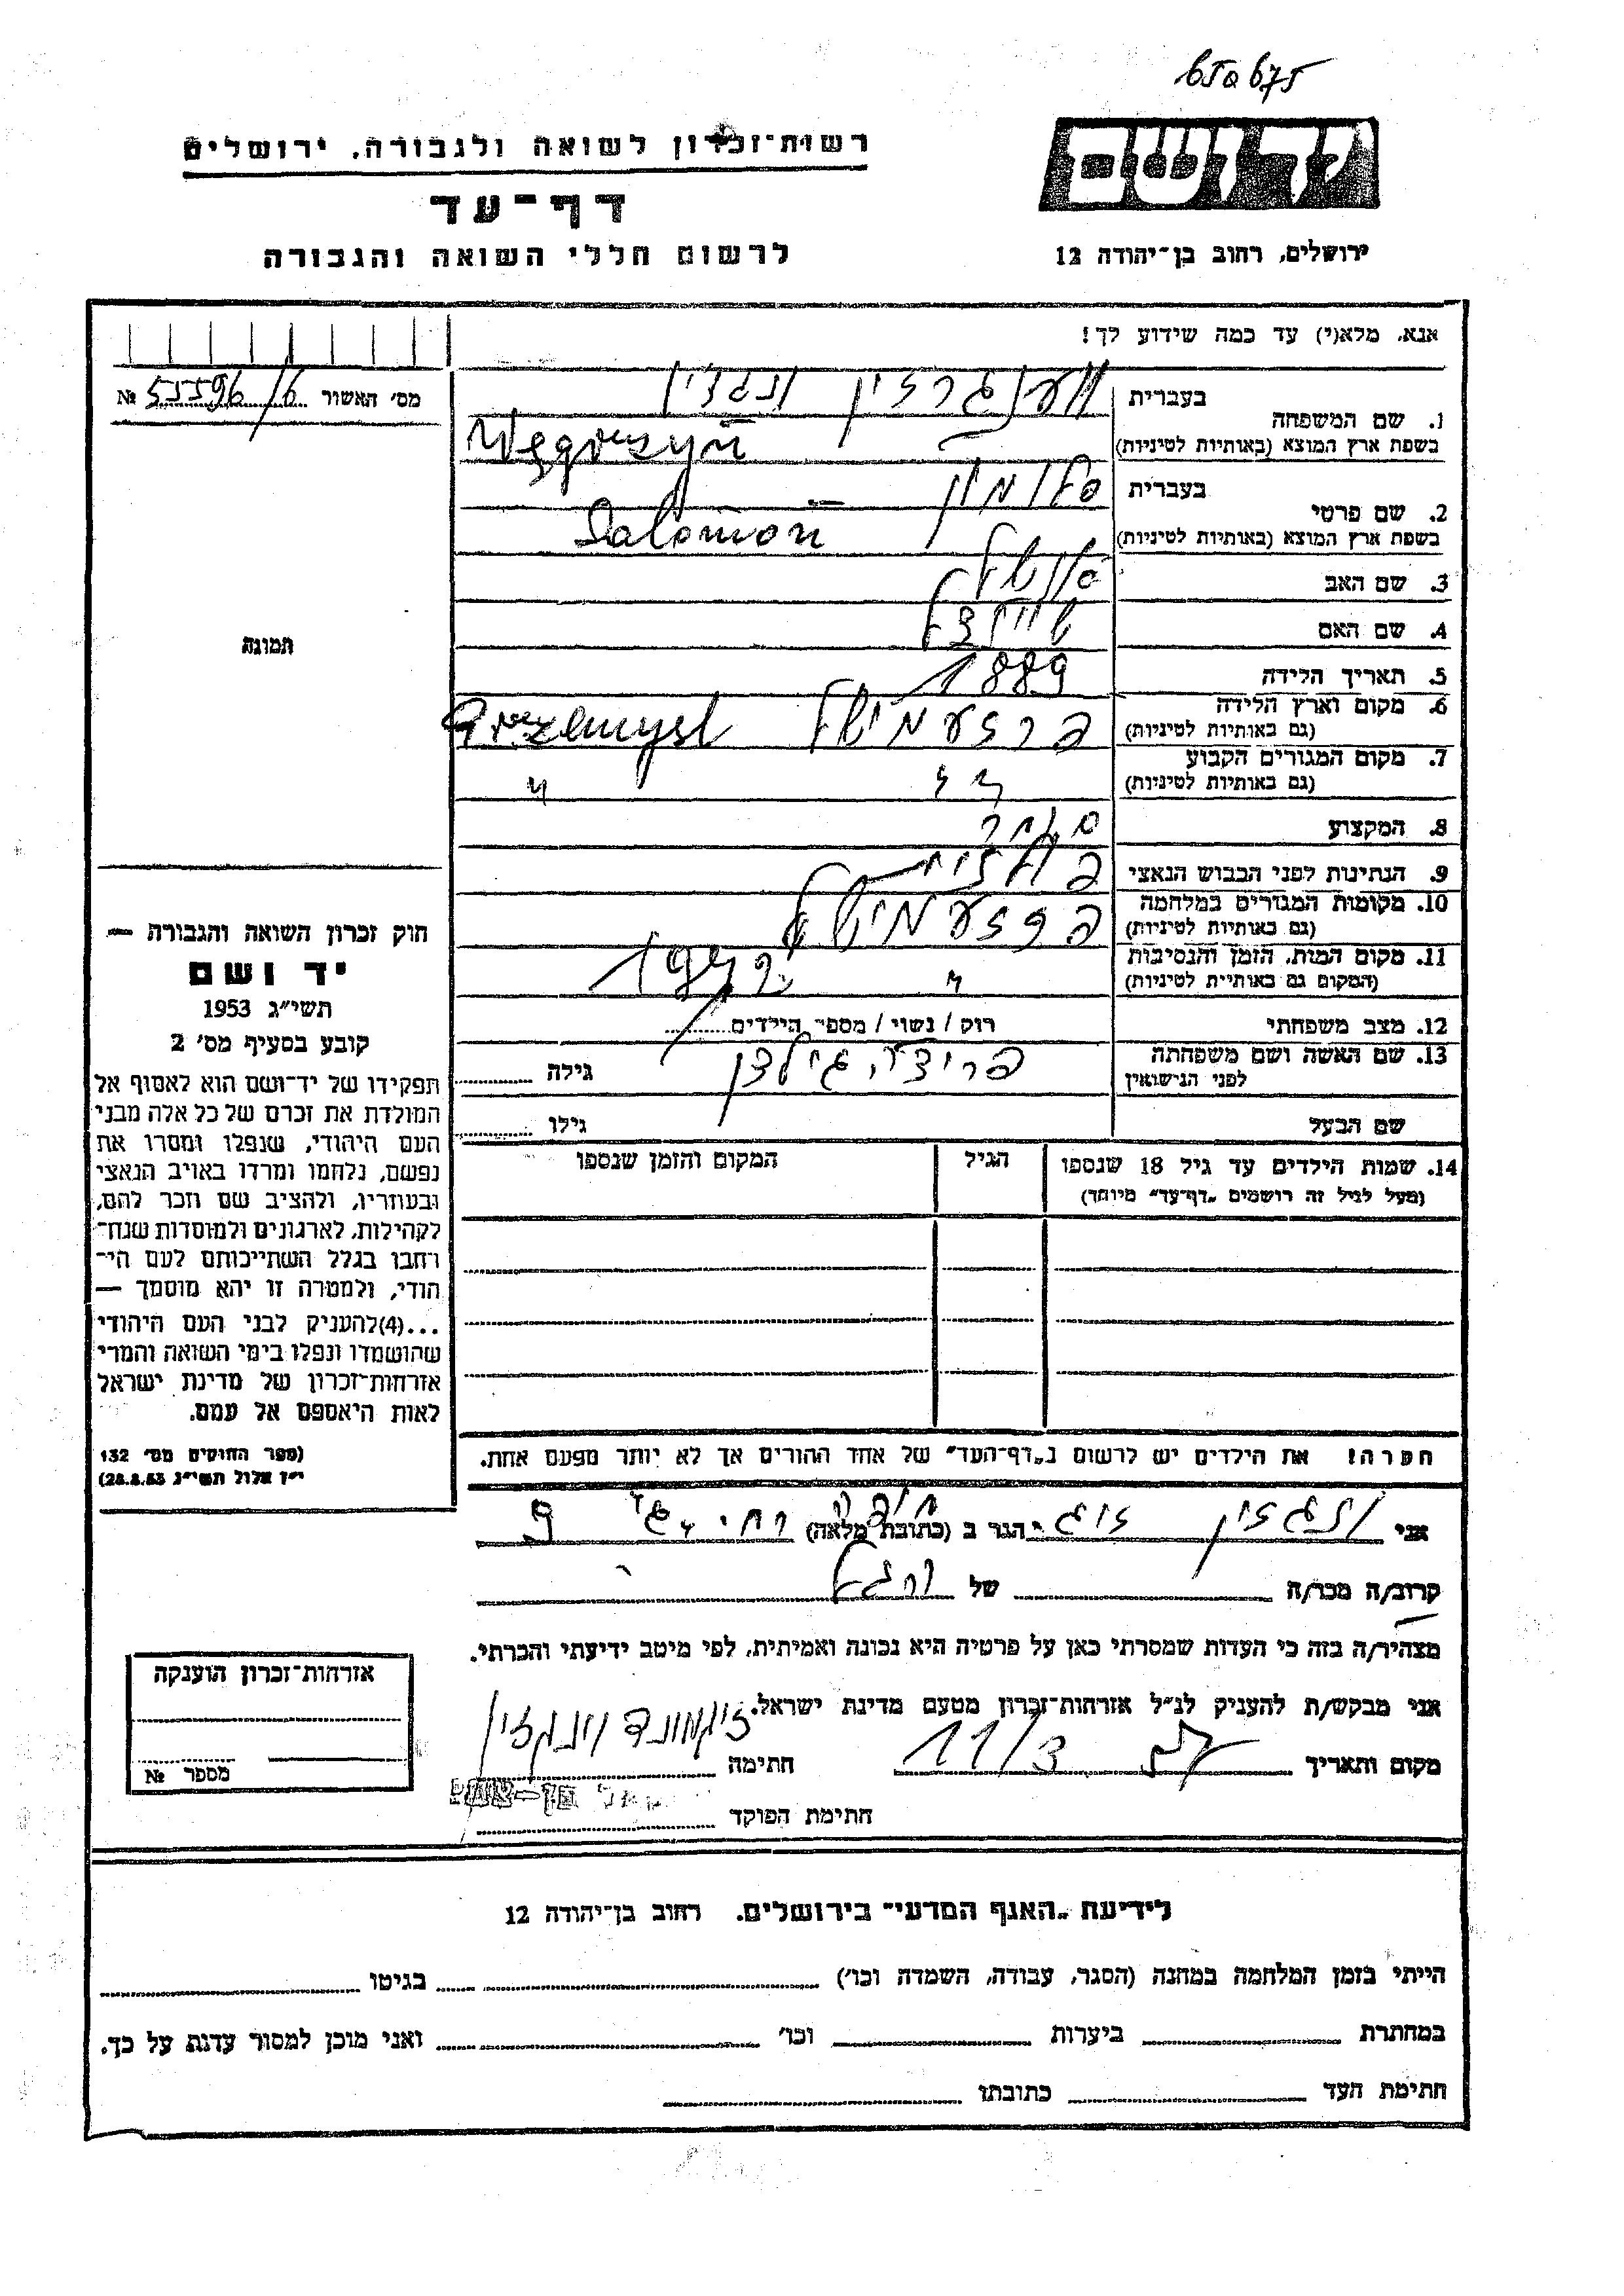 650675
רשות־זכרון לשואה ולגבורה, ירושלים
יד ושם
דף־עד
לרשום חללי השואה והגבורה
ירושלים, רחוב בן־יהודה 12
אנא, מלא(י) עד כמה שידוע לך!
מס' האשור № 55596/6
1. שם המשפחה
בעברית
בשפת ארץ המוצא (באותיות לטיניות) Węgrszyn
2. שם פרטי
בעברית סלומון
בשפת ארץ המוצא (באותיות לטיניות) Salomon
3. שם האב
4. שם האם
5. תאריך הלידה 1889
6. מקום וארץ הלידה פרזעמישל Przemysl
(גם באותיות לטיניות)
7. מקום המגורים הקבוע
(גם באותיות לטיניות)
8. המקצוע סוחר
9. הנתינות לפני הכבוש הנאצי פולנית
10. מקומות המגורים במלחמה פרזעמישל
(גם באותיות לטיניות)
11. מקום המות, הזמן והנסיבות
(המקום גם באותיית לטיניות)
12. מצב משפחתי רוק / נשוי / מספר הילדים
13. שם האשה ושם משפחתה
לפני הנישואין
גילה
שם הבעל
גילו
14. שמות הילדים עד גיל 18 שנספו
(מעל לגיל זה רושמים „דף־עד" מיוחד)
הגיל
המקום והזמן שנספו
תמונה
חוק זכרון השואה והגבורה —
יד ושם
תשי"ג 1953
קובע בסעיף מס' 2
תפקידו של יד־ושם הוא לאסוף אל
המולדת את זכרם של כל אלה מבני
העם היהודי, שנפלו ומסרו את
נפשם, נלחמו ומרדו באויב הנאצי
ובעוזריו, ולהציב שם וזכר להם,
לקהילות, לארגונים ולמוסדות שנח־
רחבו בגלל השתייכותם לעם הי־
הודי, ולמטרה זו יהא מוסמך —
...(4)להעניק לבני העם היהודי
שהושמדו ונפלו בימי השואה והמרי
אזרחות־זכרון של מדינת ישראל
לאות היאספם אל עמם.
(ספר החוקים מס' 132
י"ז אלול תשי"ג 28.8.53)
הערה! את הילדים יש לרשום ב„דף־העד" של אחד ההורים אך לא יותר מפעם אחת.
אני הגר ב (כתובת מלאה)
קרוב/ה מכר/ה של
מצהיר/ה בזה כי העדות שמסרתי כאן על פרטיה היא נכונה ואמיתית, לפי מיטב ידיעתי והכרתי.
אני מבקש/ת להעניק לנ"ל אזרחות־זכרון מטעם מדינת ישראל.
מקום ותאריך 11/3 חתימה
חתימת הפוקד
אזרחות־זכרון הוענקה
מספר №
לידיעת „האגף המדעי" בירושלים. רחוב בן־יהודה 12
הייתי בזמן המלחמה במחנה (הסגר, עבודה, השמדה וכו') בגיטו
במחתרת ביערות וכו' ואני מוכן למסור עדות על כך.
חתימת העד כתובתו